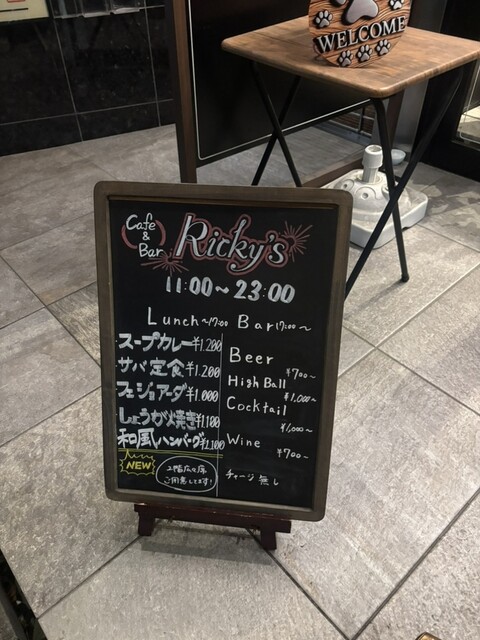 WELCOME
Cafe
&
Bar
Ricky's
11:00～23:00
Lunch～17:00
スープカレー¥1.200
サバ定食¥1.200
フェジョアーダ¥1.000
しょうが焼き¥1.100
和風ハンバーグ¥1.100
NEW
2階広い席
ご用意してます!
Bar17:00～
Beer
¥700～
High Ball
¥1,000～
Cocktail
¥1,000～
Wine
¥700～
チャージ無し